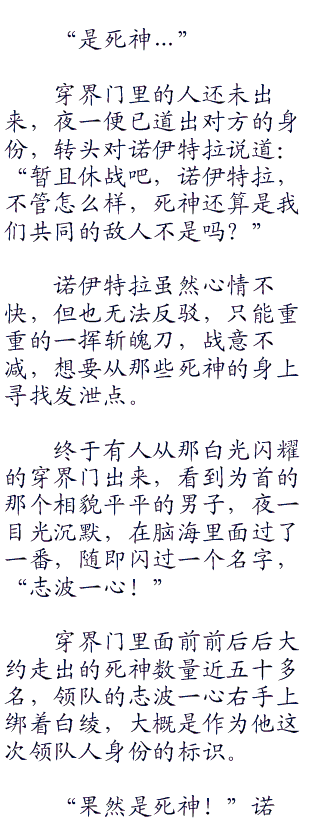 “是死神…”
穿界门里的人还未出
来，夜一便已道出对方的身
份，转头对诺伊特拉说道：
“暂且休战吧，诺伊特拉，
不管怎么样，死神还算是我
们共同的敌人不是吗？”
诺伊特拉虽然心情不
快，但也无法反驳，只能重
重的一挥斩魄刀，战意不
减，想要从那些死神的身上
寻找发泄点。
终于有人从那白光闪耀
的穿界门出来，看到为首的
那个相貌平平的男子，夜一
目光沉默，在脑海里面过了
一番，随即闪过一个名字，
“志波一心！”
穿界门里面前前后后大
约走出的死神数量近五十多
名，领队的志波一心右手上
绑着白绫，大概是作为他这
次领队人身份的标识。
“果然是死神！”诺